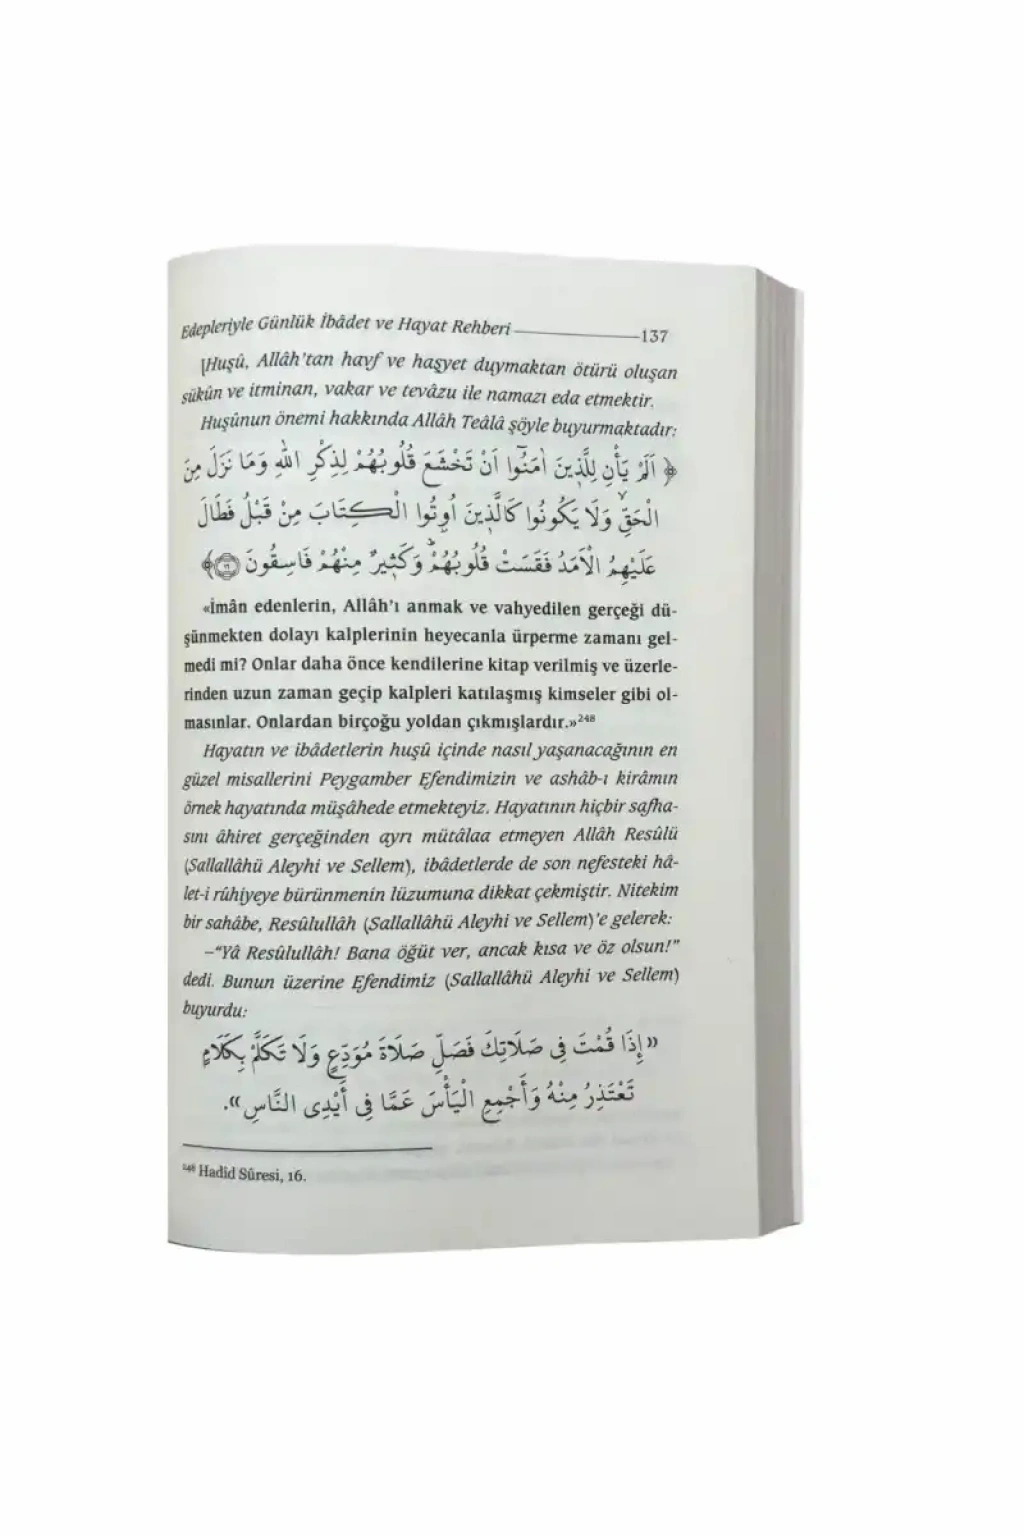 Edepleriyle Günlük İbâdet ve Hayat Rehberi 137
[Huşû, Allâh'tan havf ve haşyet duymaktan ötürü oluşan
sükûn ve itminan, vakar ve tevâzu ile namazı eda etmektir.
Huşûnun önemi hakkında Allâh Teâlâ şöyle buyurmaktadır:
﴿ اَلَمْ يَأْنِ لِلَّذِينَ اٰمَنُٓوا اَنْ تَخْشَعَ قُلُوبُهُمْ لِذِكْرِ اللّٰهِ وَمَا نَزَلَ مِنَ
الْحَقِّۙ وَلَا يَكُونُوا كَالَّذِينَ اُوتُوا الْكِتَابَ مِنْ قَبْلُ فَطَالَ
عَلَيْهِمُ الْاَمَدُ فَقَسَتْ قُلُوبُهُمْۜ وَكَثِيرٌ مِنْهُمْ فَاسِقُونَ ﴿١٦﴾
«İmân edenlerin, Allâh'ı anmak ve vahyedilen gerçeği dü-
şünmekten dolayı kalplerinin heyecanla ürperme zamanı gel-
medi mi? Onlar daha önce kendilerine kitap verilmiş ve üzerle-
rinden uzun zaman geçip kalpleri katılaşmış kimseler gibi ol-
masınlar. Onlardan birçoğu yoldan çıkmışlardır.»²⁴⁸
Hayatın ve ibâdetlerin huşû içinde nasıl yaşanacağının en
güzel misallerini Peygamber Efendimizin ve ashâb-ı kirâmın
örnek hayatında müşâhede etmekteyiz. Hayatının hiçbir safha-
sını âhiret gerçeğinden ayrı mütâlaa etmeyen Allâh Resûlü
(Sallallâhü Aleyhi ve Sellem), ibâdetlerde de son nefesteki hâ-
let-i rûhiyeye bürünmenin lüzumuna dikkat çekmiştir. Nitekim
bir sahâbe, Resûlullâh (Sallallâhü Aleyhi ve Sellem)'e gelerek:
–"Yâ Resûlullâh! Bana öğüt ver, ancak kısa ve öz olsun!"
dedi. Bunun üzerine Efendimiz (Sallallâhü Aleyhi ve Sellem)
buyurdu:
«إِذَا قُمْتَ فِى صَلَاتِكَ فَصَلِّ صَلَاةَ مُوَدِّعٍ وَلَا تَكَلَّمْ بِكَلَامٍ
تَعْتَذِرُ مِنْهُ وَأَجْمِعِ الْيَأْسَ عَمَّا فِى أَيْدِى النَّاسِ».
²⁴⁸ Hadîd Sûresi, 16.